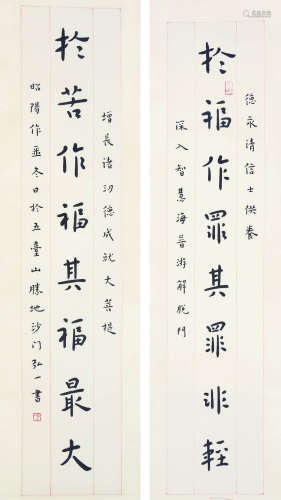 德永清信士供養
於福作罪其罪非輕
深入智慧海普游解脫門
增長諸功德成就大菩提
於苦作福其福最大
昭陽作噩冬日於五臺山勝地沙门弘一書